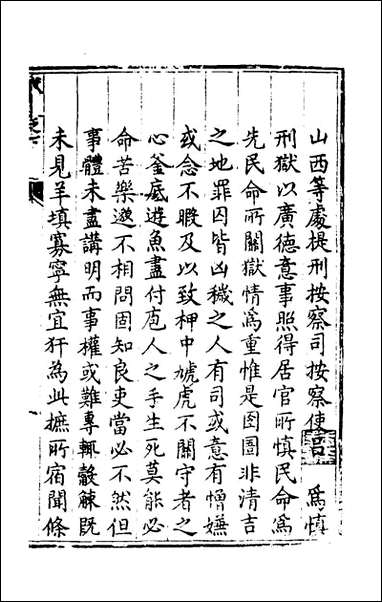 山西等處提刑按察司按察使呂　為慎
刑獄以廣德意事照得居官所慎民命為
先民命所關獄情為重惟是囹圄非清吉
之地罪囚皆凶穢之人有司或意有憎嫌
或念不暇及以致柙中虓虎不關守者之
心釜底遊魚盡付庖人之手生死莫能必
命苦樂邈不相問固知良吏當必不然但
事體未盡講明而事權或難專輒觳觫既
未見羊填寡寧無宜犴為此摭所宿聞條